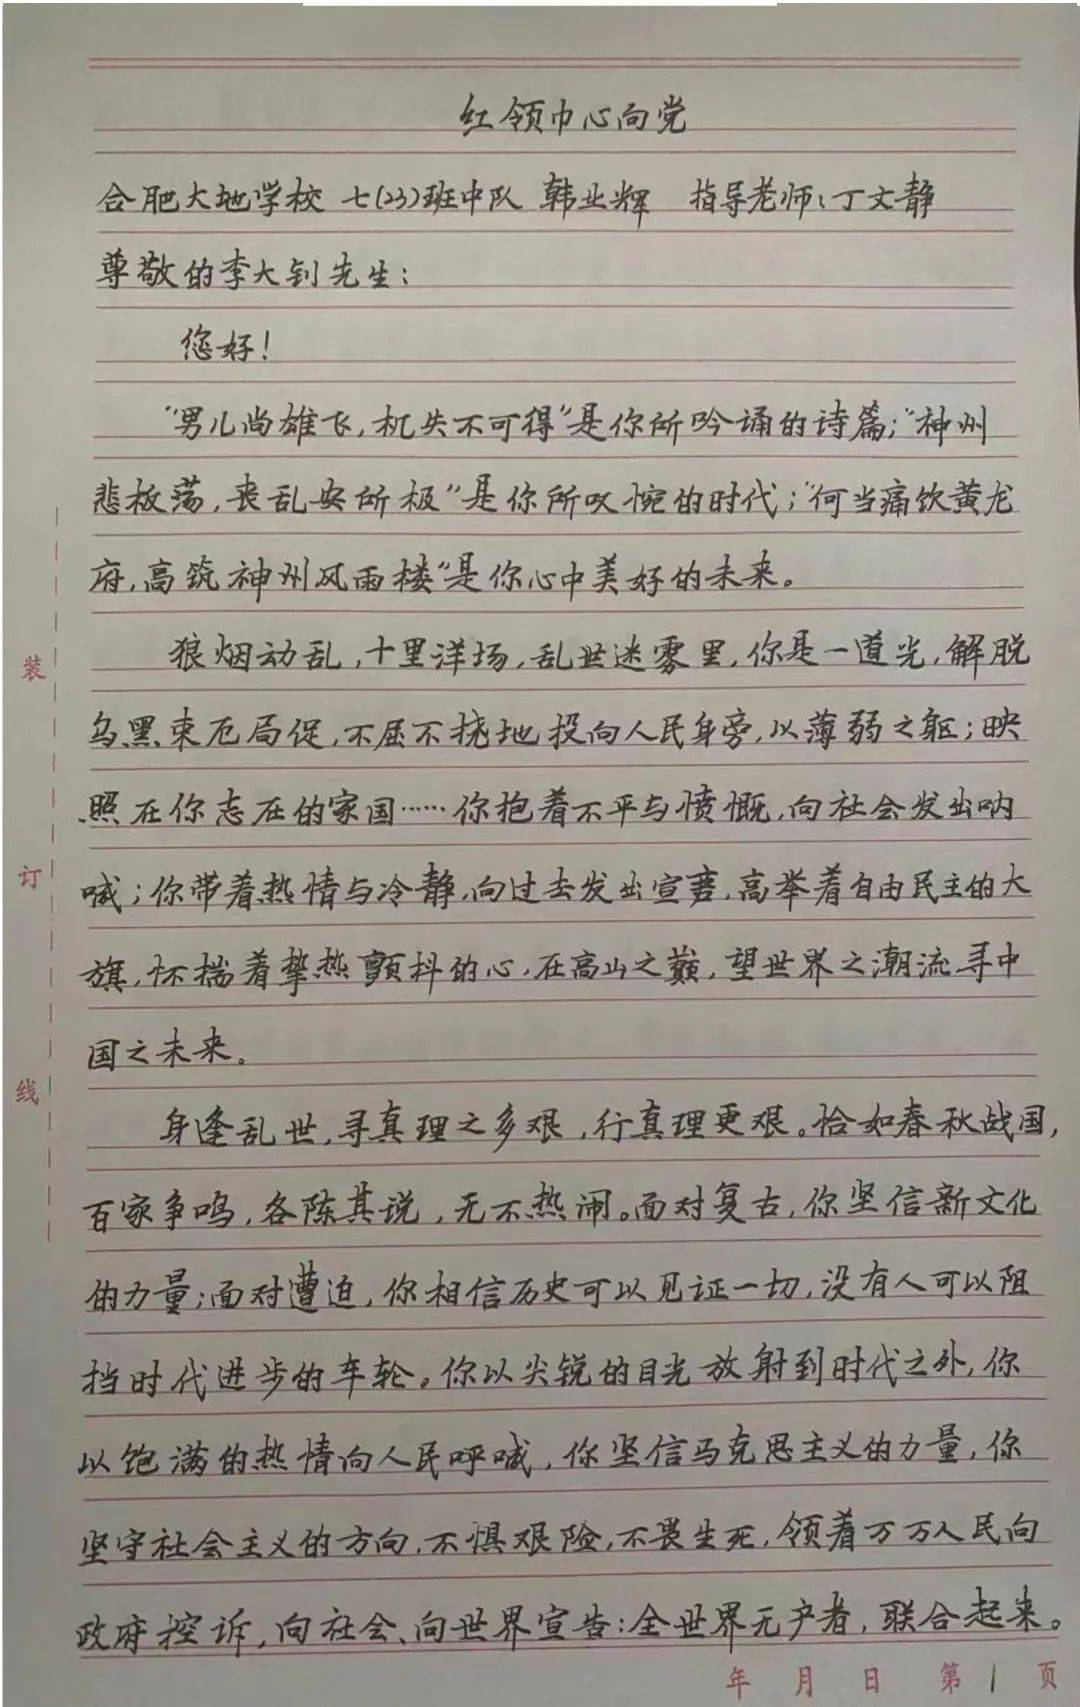 红领巾心向党
合肥大地学校 七(23)班中队 韩业辉 指导老师:丁文静
尊敬的李大钊先生:
您好!
"男儿尚雄飞,机失不可得"是你所吟诵的诗篇;"神州
悲板荡,丧乱安所极"是你所叹惋的时代;"何当痛饮黄龙
府,高筑神州风雨楼"是你心中美好的未来。
狼烟动乱,十里洋场,乱世迷雾里,你是一道光,解脱
乌黑束厄局促,不屈不挠地投向人民身旁,以薄弱之躯;映
照在你志在的家国……你抱着不平与愤慨,向社会发出呐
喊;你带着热情与冷静,向过去发出宣言,高举着自由民主的大
旗,怀揣着挚热颤抖的心,在高山之巅,望世界之潮流寻中
国之未来。
身逢乱世,寻真理之多艰,行真理更艰。恰如春秋战国,
百家争鸣,各陈其说,无不热闹。面对复古,你坚信新文化
的力量;面对遭迫,你相信历史可以见证一切,没有人可以阻
挡时代进步的车轮。你以尖锐的目光放射到时代之外,你
以饱满的热情向人民呼喊,你坚信马克思主义的力量,你
坚守社会主义的方向,不惧艰险,不畏生死,领着万万人民向
政府控诉,向社会、向世界宣告:全世界无产者,联合起来。
装
订
线
年 月 日 第 1 页